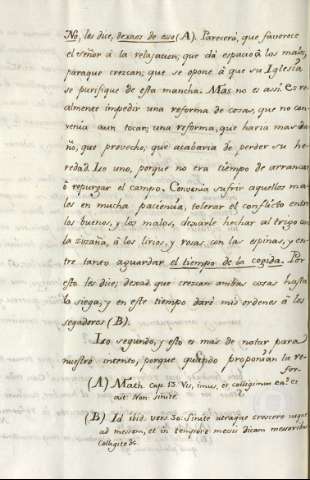 No, les dice, dexaos de eso (A). Parecerá, que favorece
el señor á la relaxacion; que dá espacio á los malos,
paraque crezcan; que se opone á que su Iglesia
se purifique de esta mancha. Mas no es assi. Es re-
almente impedir una reforma de cosas, que no con-
venia aun tocar; una reforma, que haria mas da-
ño, que provecho; que acabaria de perder su he-
redad. Lo uno, porque no era tiempo de arrancar
ó repurgar el campo. Convenia sufrir aquellos ma-
les en mucha paciencia, tolerar el conflicto entre
los buenos, y los malos, dexarle hechar al trigo con
la zizaña, á los lirios, y rosas con las espinas, y en-
tre tanto aguardar el tiempo de la cogida. Por
esto les dice; dexad que crezcan ambas cosas hasta
la siega; y en este tiempo daré mis ordenes á los
segadores (B).
Lo segundo, y esto es mas de notar para
nuestro intento, porque quando proponian la re-
for-
(A) Math. cap. 13. Vis, imus, et colligimus ea? et
ait: Non: sinite
(B) Id. ibid. vers. 30. Sinite utraque crescere usque
ad messem, et in tempore messis dicam messoribus
Colligite &c.